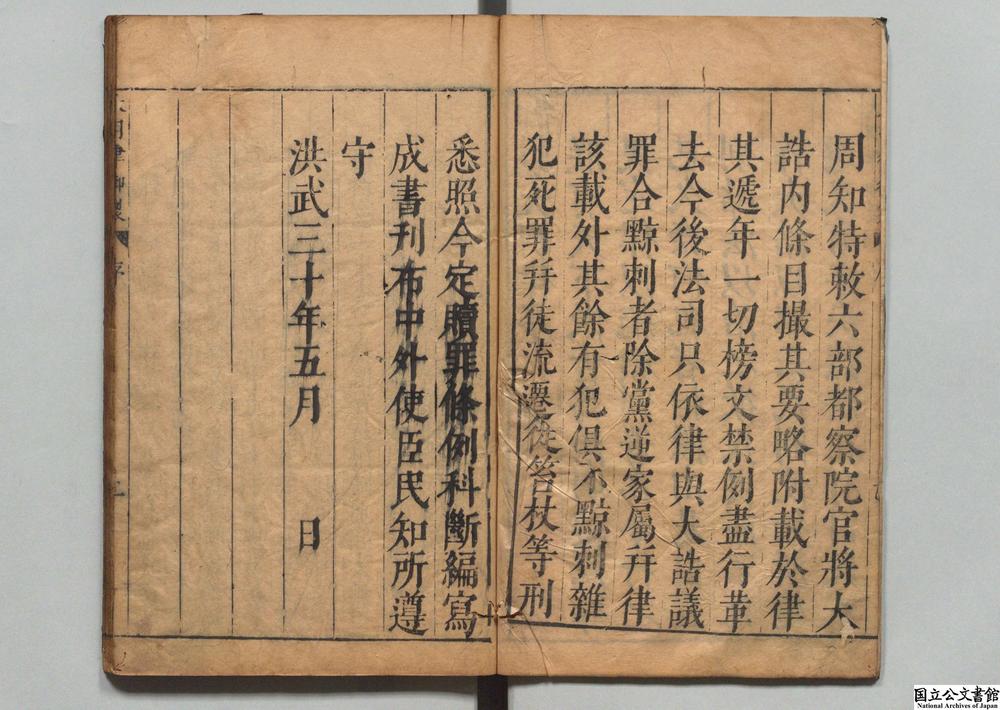 周知特敕六部都察院官將大
誥内條目撮其要略附載於律
其遞年一切榜文禁例盡行革
去今後法司只依律與大誥議
罪合黥刺者除黨逆家屬幷律
該載外其餘有犯俱不黥刺雜
犯死罪幷徒流遷徙笞杖等刑
悉照今定贖罪條例科斷編寫
成書刊布中外使臣民知所遵
守
洪武三十年五月　日
國立公文書館
National Archives of Japan